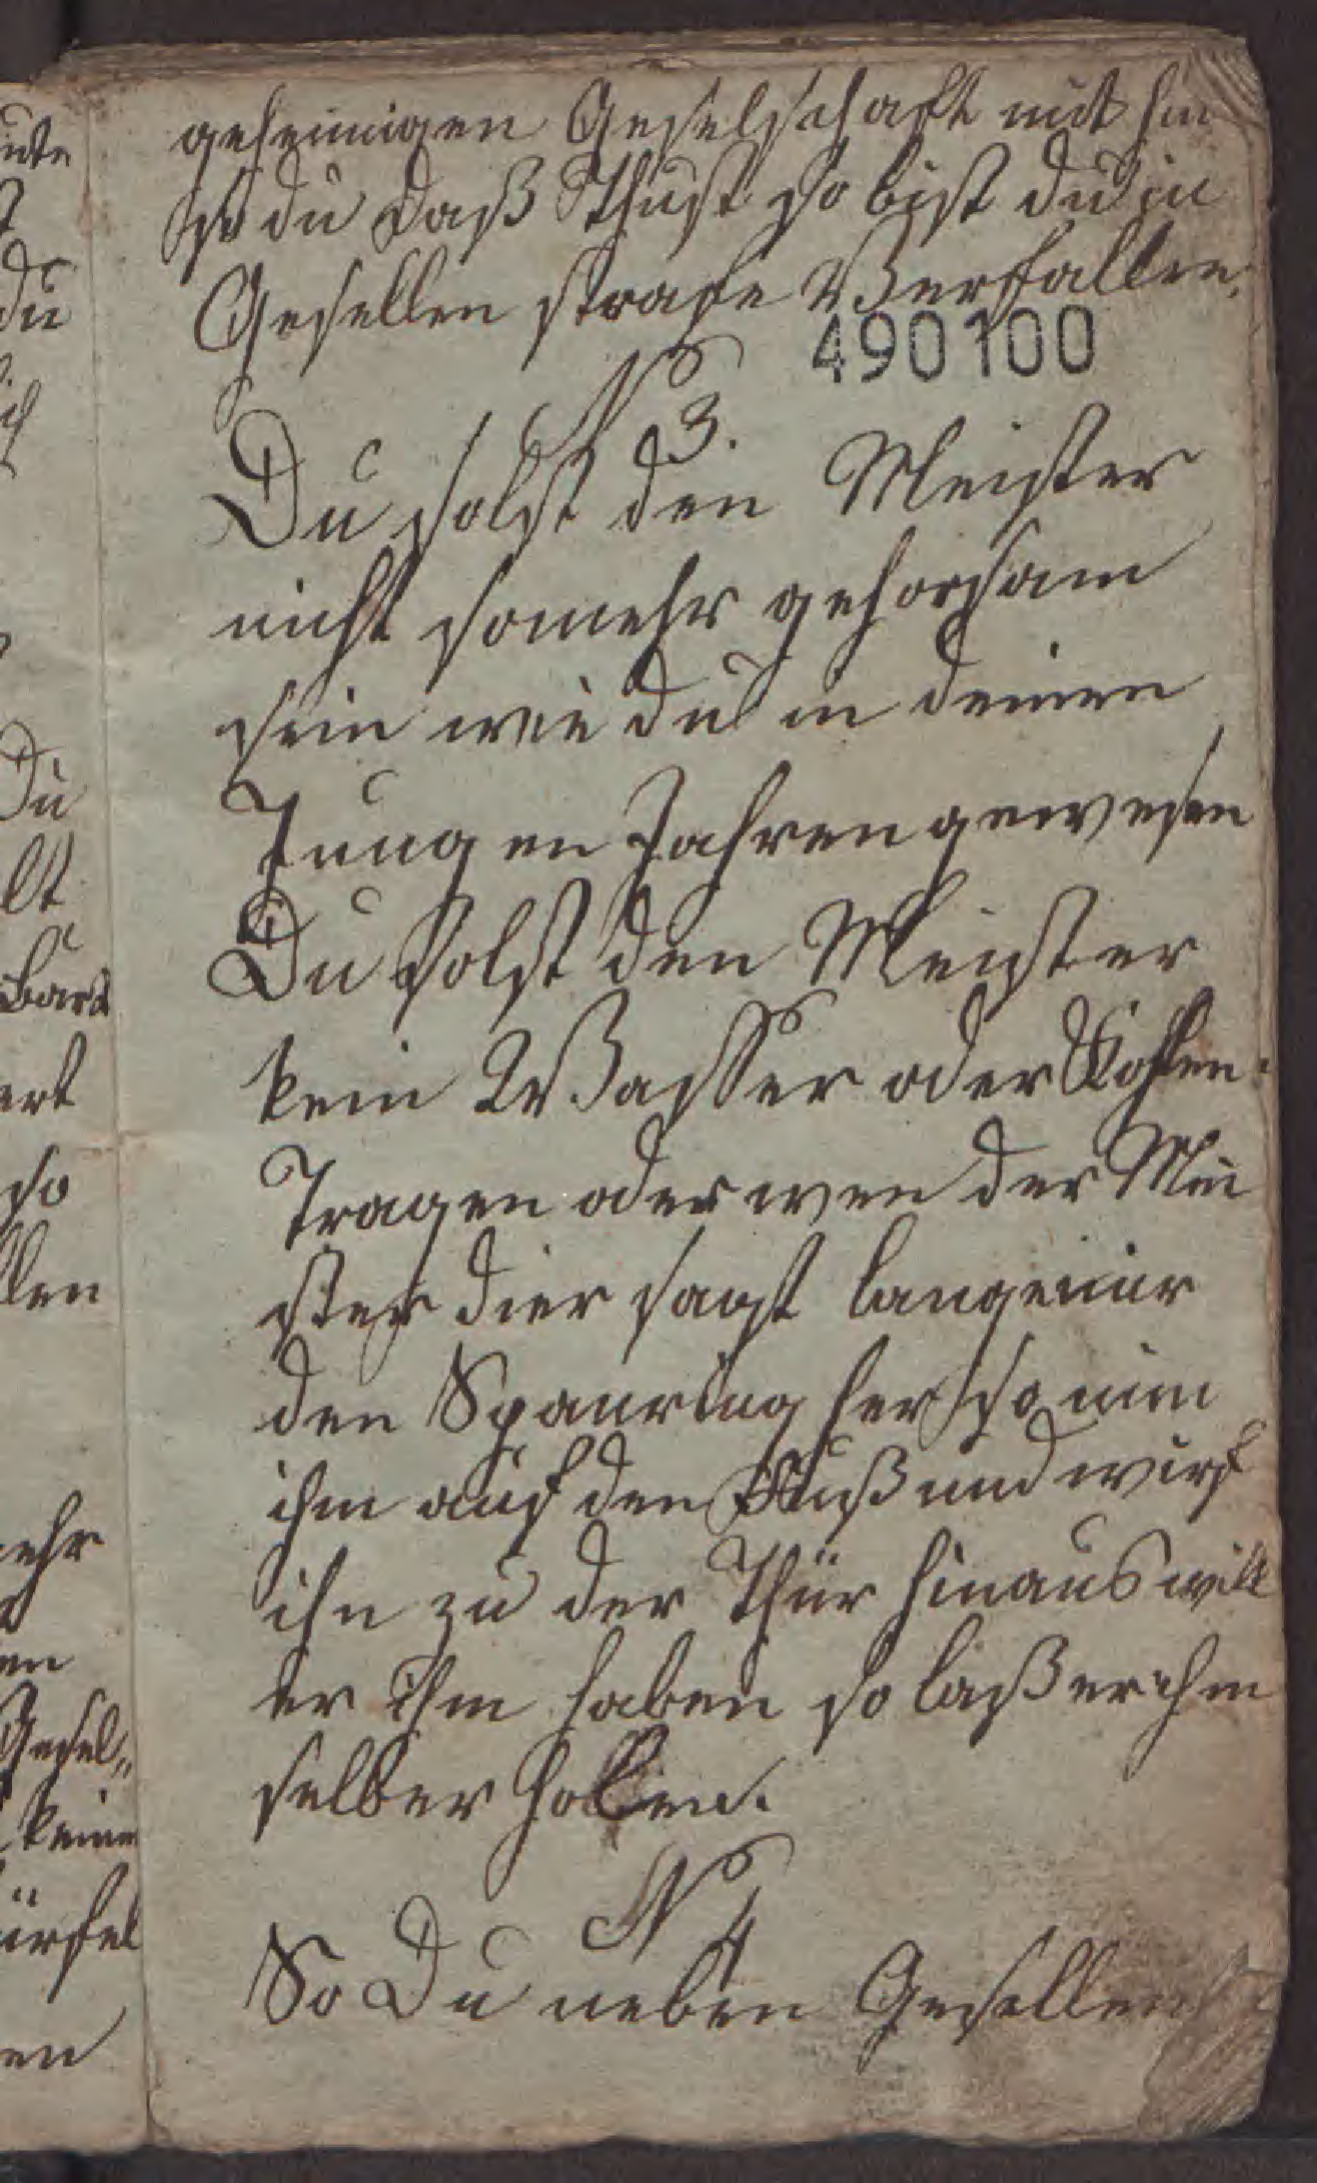 geheimigen Geselschaft mit hin
so du daß Thust so bist du in
Gesellen strafe Verfallen.
490100
N 3.
Du solst den Meister
nicht somehr gehorsam
sein wie du in deinen
Jungen Jahren gewesen
Du solst den Meister
kein Wasser oder Kohlen
Tragen oder wen der Mei
ster dier sagt lange mir
den Spanring her so nim
ihm auf den Fuß und wirf
ihn zu der Thür hinaus will
er ihm haben so laß er ihm
selber holen.
N 4
So Du neben Gesellen
du
Du
lt
ert
so
llen
ehr
en
Gesel„
keine
ürfel
en